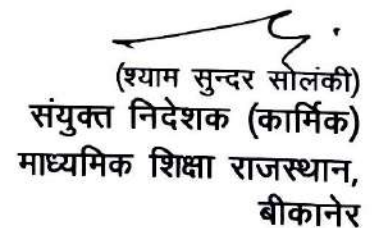 (श्याम सुन्दर सोलंकी)
संयुक्त निदेशक (कार्मिक)
माध्यमिक शिक्षा राजस्थान,
बीकानेर